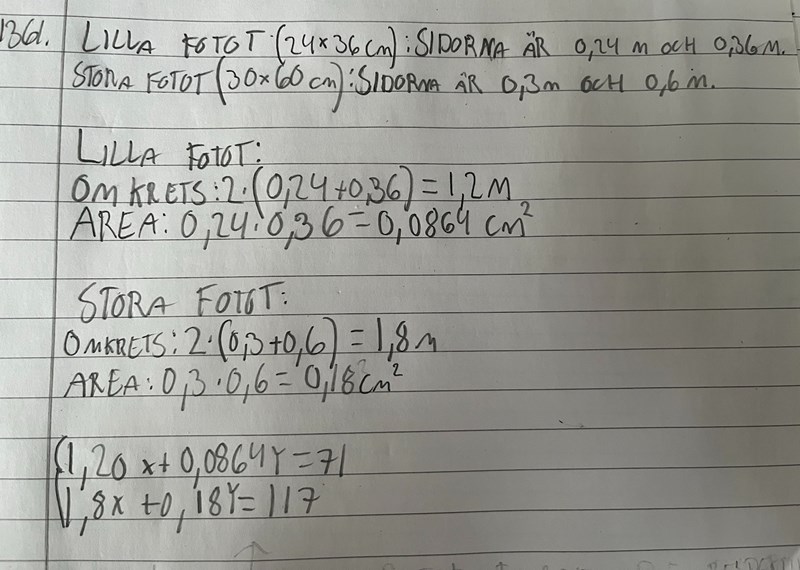 1361. LILLA FOTOT:(24×36cm):SIDORNA ÄR 0,24 m OCH 0,36M.
STORA FOTOT(30×60cm):SIDORNA ÄR 0,3m OCH 0,6 m.
LILLA FOTOT:
OMKRETS:2·(0,24+0,36)=1,2M
AREA: 0,24·0,36=0,0864 cm²
STORA FOTOT:
OMKRETS:2·(0,3+0,6)=1,8m
AREA:0,3·0,6=0,18cm²
{1,20x+0,0864Y=71
1,8x+0,18Y=117